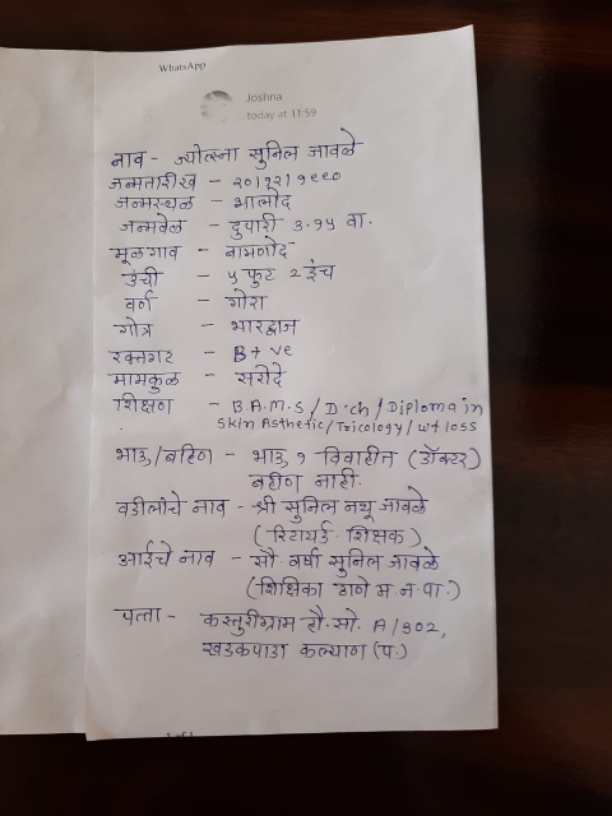 WhatsApp
Joshna
today at 11:59
नाव - ज्योत्स्ना सुनिल जावळे
जन्मतारीख - २०।१२।१९९०
जन्मस्थळ - भालोद
जन्मवेळ - दुपारी ३.१५ वा.
मूळगाव - बामणोद
उंची - ५ फुट २ इंच
वर्ण - गोरा
गोत्र - भारद्वाज
रक्तगट - B+ ve
मामकुळ - सरोदे
शिक्षण - B.A.M.S / D.ch / Diploma in
Skin Asthetic / Tricology / wt loss
भाऊ/बहिण - भाऊ १ विवाहीत (डॉक्टर)
बहीण नाही.
वडीलांचे नाव - श्री सुनिल नथू जावळे
(रिटायर्ड शिक्षक)
आईचे नाव - सौ. वर्षा सुनिल जावळे
(शिक्षिका ठाणे म.न.पा.)
पत्ता - कस्तुरीग्राम हौ.सो. A/302,
खडकपाडा कल्याण (प.)